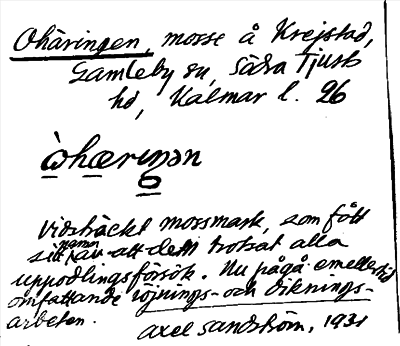 Ohäringen, mosse å Krejstad,
Gamleby sn, Södra Tjusts
hd, Kalmar l. 26
òhæriŋən
Vidsträckt mossmark, som fått
sitt namn av att den trotsat alla
uppodlingsförsök. Nu pågå emellertid
omfattande röjnings- och diknings-
arbeten.
Axel Sandström, 1931